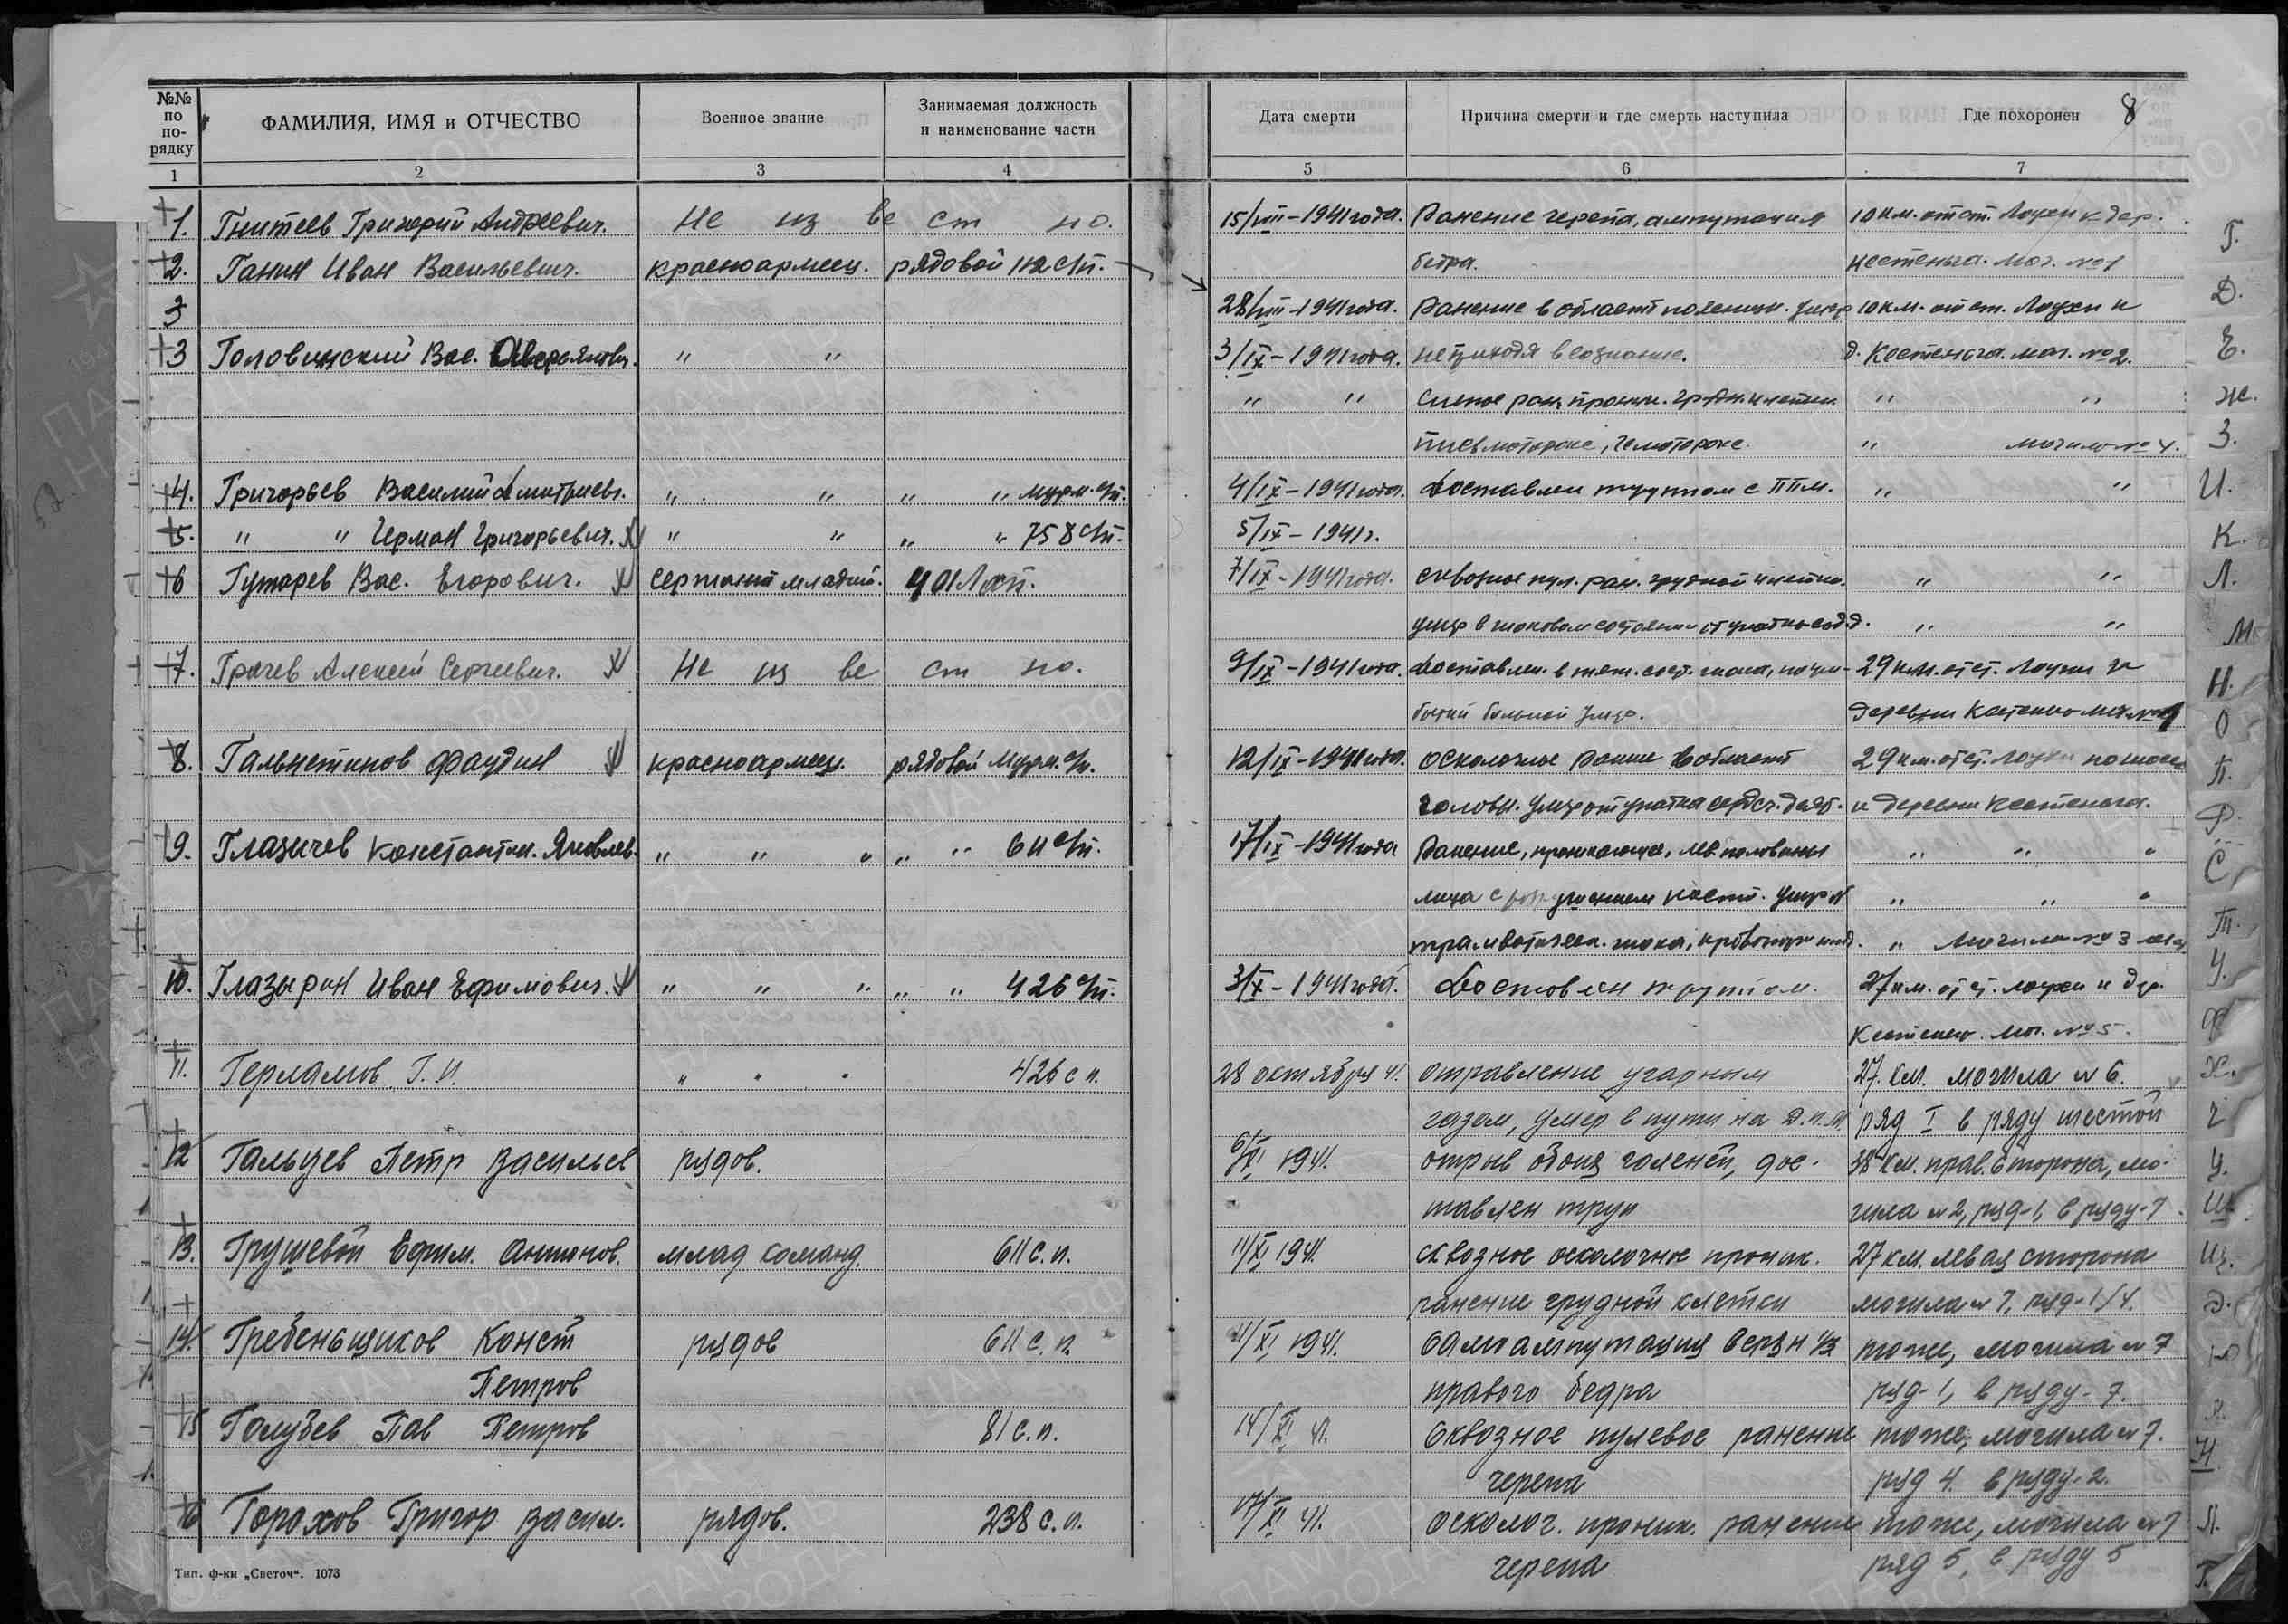 №№ по по- рядку ФАМИЛИЯ, ИМЯ и ОТЧЕСТВО Военное звание Занимаемая должность и наименование части Дата смерти Причина смерти и где смерть наступила Где похоронен 8
1 2 3 4 5 6 7
1. Гнитеев Григорий Андреевич. Не из ве ст но. 15/VIII-1941 года. Ранение черепа, ампутация 10 км. от ст. Лоухи к дер. Г.
2. Ганин Иван Васильевич. красноармеец. рядовой сп. бедра. Кестеньга. мог. №1
3 28/VIII-1941 года. Ранение в област поясницы. Умер 10 км. от ст. Лоухи к Д.
3 Головинский Вас. Аверьянович. " " 3/IX-1941 года. не приходя в сознание. д. Кестеньга. мог. №2. Е.
" " Слепое ран. проник. гр. клетки " " Ж.
пневмоторокс, гемоторокс. " могила №4. З.
4. Григорьев Василий Дмитриев. " " " " Мурм. сп. 4/IX-1941 года. Доставлен трупом с ППМ. " " И.
5. " " Герман Григорьевич. " " " " 758 сп. 5/IX-1941 г. К.
6 Гутарев Вас. Егорович. сержант младший. 401 7/IX-1941 года. сквозное пул. ран. грудной клетки. " " Л.
умер в шоковом состоянии от упадка с.д. " " М
7. Грачев Алексей Сергеевич. Не из ве ст но. 9/IX-1941 года. Доставлен. в тяж. сост. шока, 29 км. от ст. Лоухи к Н.
больной умер. деревни О
8. фаудин красноармеец. рядовой Мурм. сп. 12/IX-1941 года. осколочное ранние в област 29 км. от ст. Лоухи по шоссе П.
головы. Умер от упадка сердеч. деят. к деревни Кестеньга. Р.
9. Глазичев Константин. Яковлев. " " " " " 611 сп. 17/IX-1941 года Ранение, лев. половины " " " С
лица с костей. Умер от " " "
шока, " Могила №3 Т.
10. Глазырин Иван Ефимович. " " " " " 426 сп. 3/X-1941 года. Доставлен трупом. 27 км. от ст. Лоухи к дер. У.
Кестеньга. мог. №5. Ф
11. Герламов Г.И. " " " 426 с п. 28 октября 41. отравление угарным 27. км. могила № 6. Х.
газом, умер в пути на Д.П.М. ряд I в ряду шестой Ч
12 Гальцев Петр Васильев рядов. 6/XI 1941. отрыв обоих голеней, дос- 38 км. прав. сторона, мо- Ц.
тавлен труп гила № 2, ряд-1, в ряду-7. Ш.
13. Грушевой Ефим. Антонов. млад команд. 611 с.п. 11/XI 1941. сквозное осколочное проник. 27 км. левая сторона Щ.
ранение грудной клетки могила № 7, ряд-1/4. Э.
14. Гребеньщиков Конст рядов 611 с.п. 11/XI 1941. Самоампутация верхн 1/3 тоже, могила № 7 Ю
Петров правого бедра ряд-1, в ряду-7. Я.
15 Голубев Пав Петров 81 с.п. 14/XI 41. Сквозное пулевое ранение тоже, могила № 7.
черепа ряд 4. в ряду-2.
16 Горохов Григор Васил. рядов. 238 с.п. 17/XI 41. осколоч. проник. ранение тоже, могила № 7
черепа ряд 5, в ряду 5
Тип. ф-ки „Светоч“. 1073